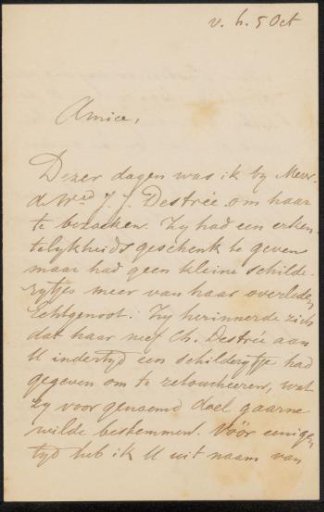 v. h. 5 Oct
Amice,
Dezer dagen was ik by Mevr.
d Wed J. J. Destrée om haar
te bezoeken. Zy had een erken-
telykheids geschenk te geven
maar had geen kleine schilde-
rytjes meer van haar overleden
Echtgenoot: Zy herinnerde zich
dat haar neef Ch. Destrée aan
U indertyd een schilderytje had
gegeven om te retoucheeren, wat
zy voor genoemd doel gaarne
wilde bestemmen. Vóór eenigen
tyd heb ik U uit naam van